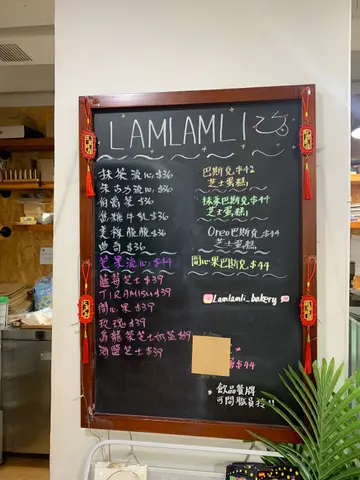 LAMLAMLI
抹茶流心 $36
朱古力流心 $36
伯爵茶 $36
曲奇 $36
芒果流心 $44
藍莓芝士 $39
TIRAMISU $39
開心果 $39
玫瑰 $39
烏龍茶芝士
海鹽芝士 $39
巴斯克 $42
芝士蛋糕
抹茶巴斯克 $44
芝士蛋糕
Oreo巴斯克 $44
芝士蛋糕
開心果巴斯克 $44
Lamlamli_bakery
$44
飲品餐牌
可問職員拎!!